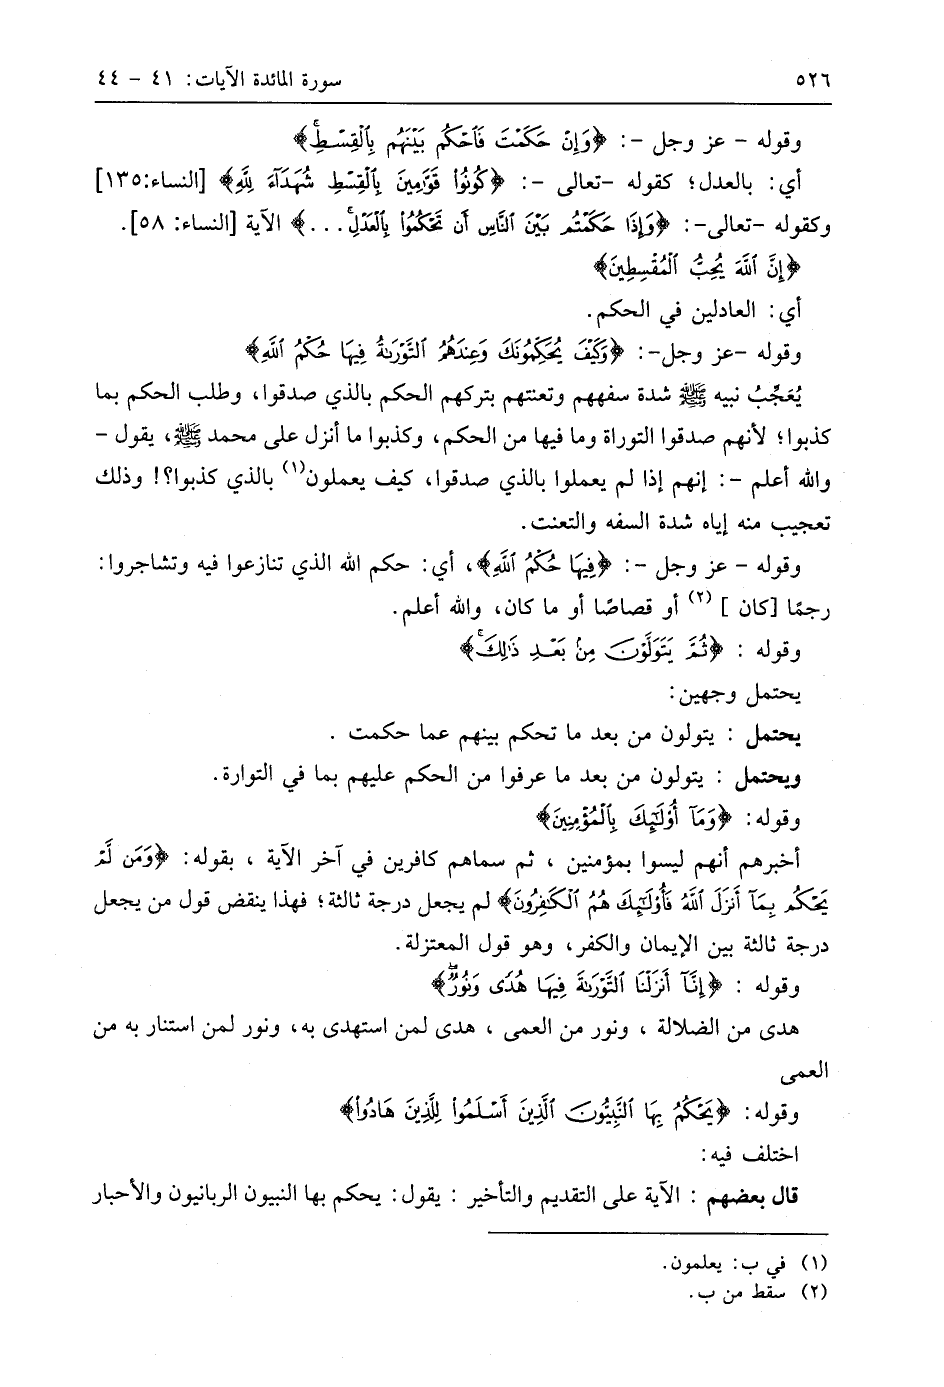 ٥٢٦ سورة المائدة الآيات: ٤١ - ٤٤
وقوله - عز وجل -: ﴿وَإِنْ حَكَمْتَ فَٱحْكُم بَيْنَهُم بِٱلْقِسْطِۚ﴾
أي: بالعدل؛ كقوله -تعالى -: ﴿كُونُوا۟ قَوَّٰمِينَ بِٱلْقِسْطِ شُهَدَآءَ لِلَّهِ﴾ [النساء:١٣٥]
وكقوله -تعالى-: ﴿وَإِذَا حَكَمْتُم بَيْنَ ٱلنَّاسِ أَن تَحْكُمُوا۟ بِٱلْعَدْلِۚ...﴾ الآية [النساء: ٥٨].
﴿إِنَّ ٱللَّهَ يُحِبُّ ٱلْمُقْسِطِينَ﴾
أي: العادلين في الحكم.
وقوله -عز وجل-: ﴿وَكَيْفَ يُحَكِّمُونَكَ وَعِندَهُمُ ٱلتَّوْرَىٰةُ فِيهَا حُكْمُ ٱللَّهِ﴾
يُعَجِّبُ نبيه ﷺ شدة سفههم وتعنتهم بتركهم الحكم بالذي صدقوا، وطلب الحكم بما
كذبوا؛ لأنهم صدقوا التوراة وما فيها من الحكم، وكذبوا ما أنزل على محمد ﷺ، يقول -
والله أعلم -: إنهم إذا لم يعملوا بالذي صدقوا، كيف يعملون(١) بالذي كذبوا؟! وذلك
تعجيب منه إياه شدة السفه والتعنت.
وقوله - عز وجل -: ﴿فِيهَا حُكْمُ ٱللَّهِ﴾، أي: حكم الله الذي تنازعوا فيه وتشاجروا:
رجمًا [كان ](٢) أو قصاصًا أو ما كان، والله أعلم.
وقوله : ﴿ثُمَّ يَتَوَلَّوْنَ مِنۢ بَعْدِ ذَٰلِكَۚ﴾
يحتمل وجهين:
يحتمل : يتولون من بعد ما تحكم بينهم عما حكمت .
ويحتمل : يتولون من بعد ما عرفوا من الحكم عليهم بما في التوارة.
وقوله: ﴿وَمَآ أُو۟لَٰٓئِكَ بِٱلْمُؤْمِنِينَ﴾
أخبرهم أنهم ليسوا بمؤمنين ، ثم سماهم كافرين في آخر الآية ، بقوله: ﴿وَمَن لَّمْ
يَحْكُم بِمَآ أَنزَلَ ٱللَّهُ فَأُو۟لَٰٓئِكَ هُمُ ٱلْكَٰفِرُونَ﴾ لم يجعل درجة ثالثة؛ فهذا ينقض قول من يجعل
درجة ثالثة بين الإيمان والكفر، وهو قول المعتزلة.
وقوله : ﴿إِنَّآ أَنزَلْنَا ٱلتَّوْرَىٰةَ فِيهَا هُدًى وَنُورٌۖ﴾
هدى من الضلالة ، ونور من العمى ، هدى لمن استهدى به، ونور لمن استنار به من
العمى
وقوله: ﴿يَحْكُمُ بِهَا ٱلنَّبِيُّونَ ٱلَّذِينَ أَسْلَمُوا۟ لِلَّذِينَ هَادُوا۟﴾
اختلف فيه:
قال بعضهم : الآية على التقديم والتأخير : يقول: يحكم بها النبيون الربانيون والأحبار
(١) في ب: يعلمون.
(٢) سقط من ب.